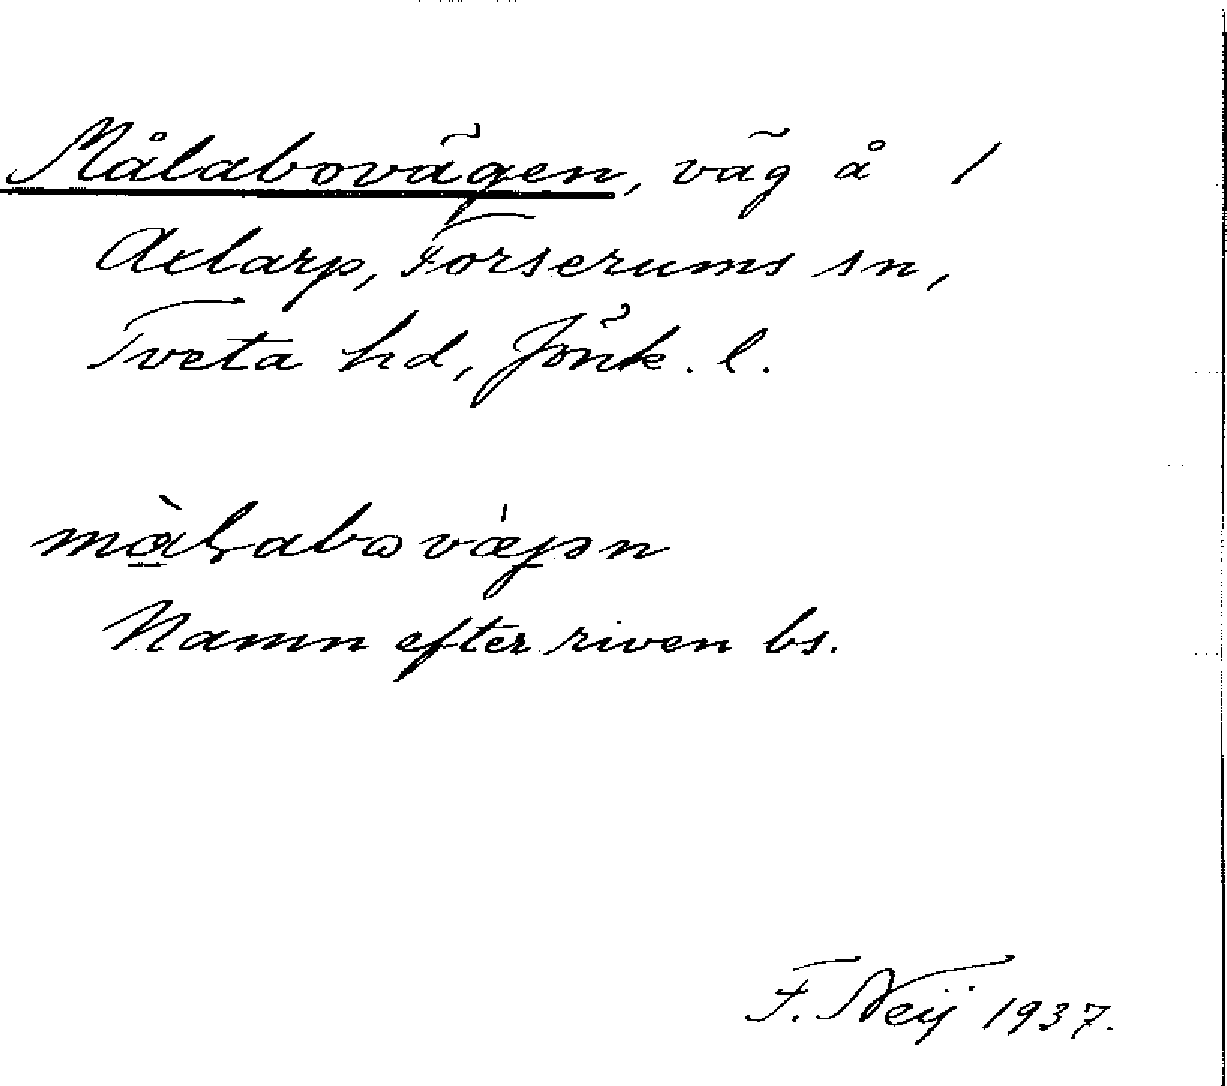 Målabovägen, väg å 1
Axtarp, Forserums sn,
Tveta hd, Jönk. l.
Namn efter riven bs.
F. Neij 1937.